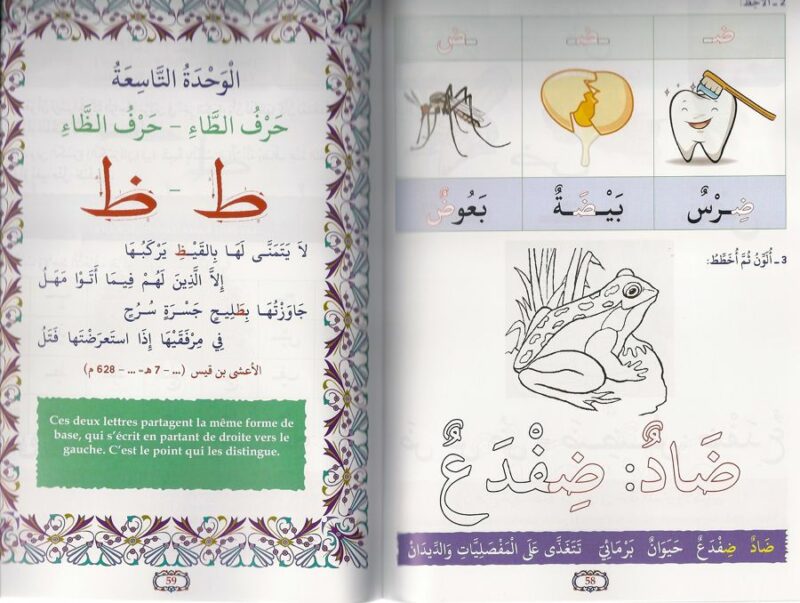 2 ـ أُلَاحِظُ:
ضـ ـضـ ـض
ضِـرْسٌ بَيْـضَـةٌ بَعُوضٌ
3 ـ أُلَوِّنُ ثُمَّ أُخَطِّطُ:
ضَادٌ: ضِفْدَعٌ
ضَادٌ ضِفْدَعٌ حَيَوَانٌ بَرْمَائِيٌّ تَتَغَذَّى عَلَى الْمَفْصَلِيَّاتِ وَالدِّيدَانْ
58
الْوَحْدَةُ التَّاسِعَةُ
حَرْفُ الطَّاءِ - حَرْفُ الظَّاءِ
ط - ظ
لَا يَتَمَنَّى لَهَا بِالقَيْظِ يَرْكَبُهَا
إِلاَّ الَّذِينَ لَهُمْ فِيمَا أَتَوْا مَهْلُ
جَاوَزْتُهَا بِطَلِيحٍ جَسْرَةٍ سُرُحٍ
فِي مِرْفَقَيْهَا إِذَا اسْتَعرَضْتَها فَتَلُ
الأعشى بن قيس (... - 7 هـ- ... - 628 م)
Ces deux lettres partagent la même forme de
base, qui s'écrit en partant de droite vers le
gauche. C'est le point qui les distingue.
59